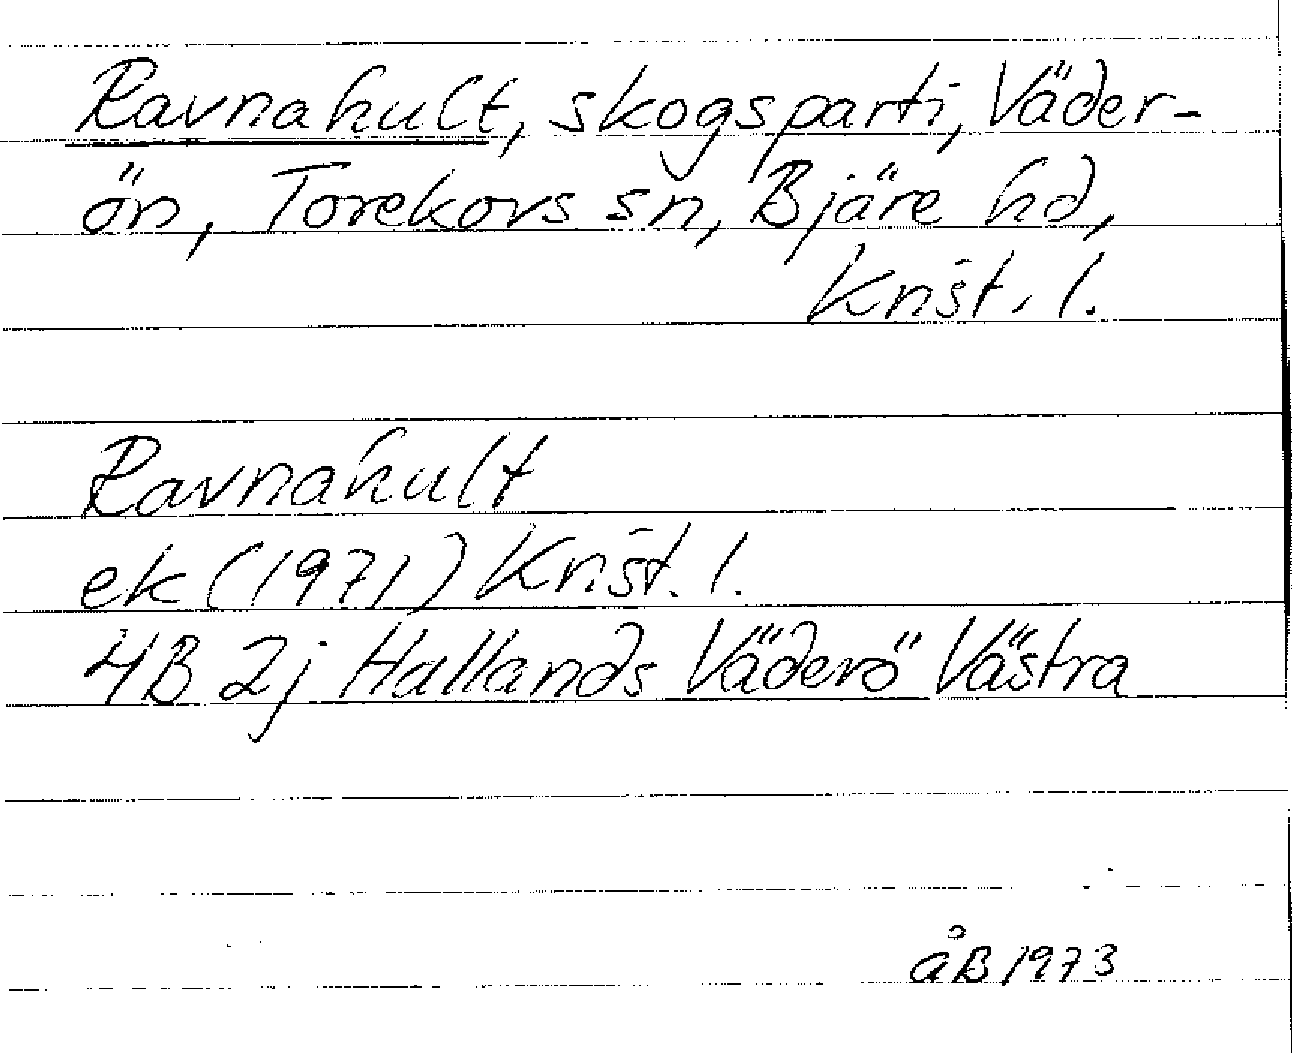 Ravnahult, skogsparti, Väder-
ön, Torekovs sn, Bjäre hd,
Krist. l.
Ravnahult
ek (1971) Krist. l.
4B 2j Hallands Väderö Västra
åB 1973